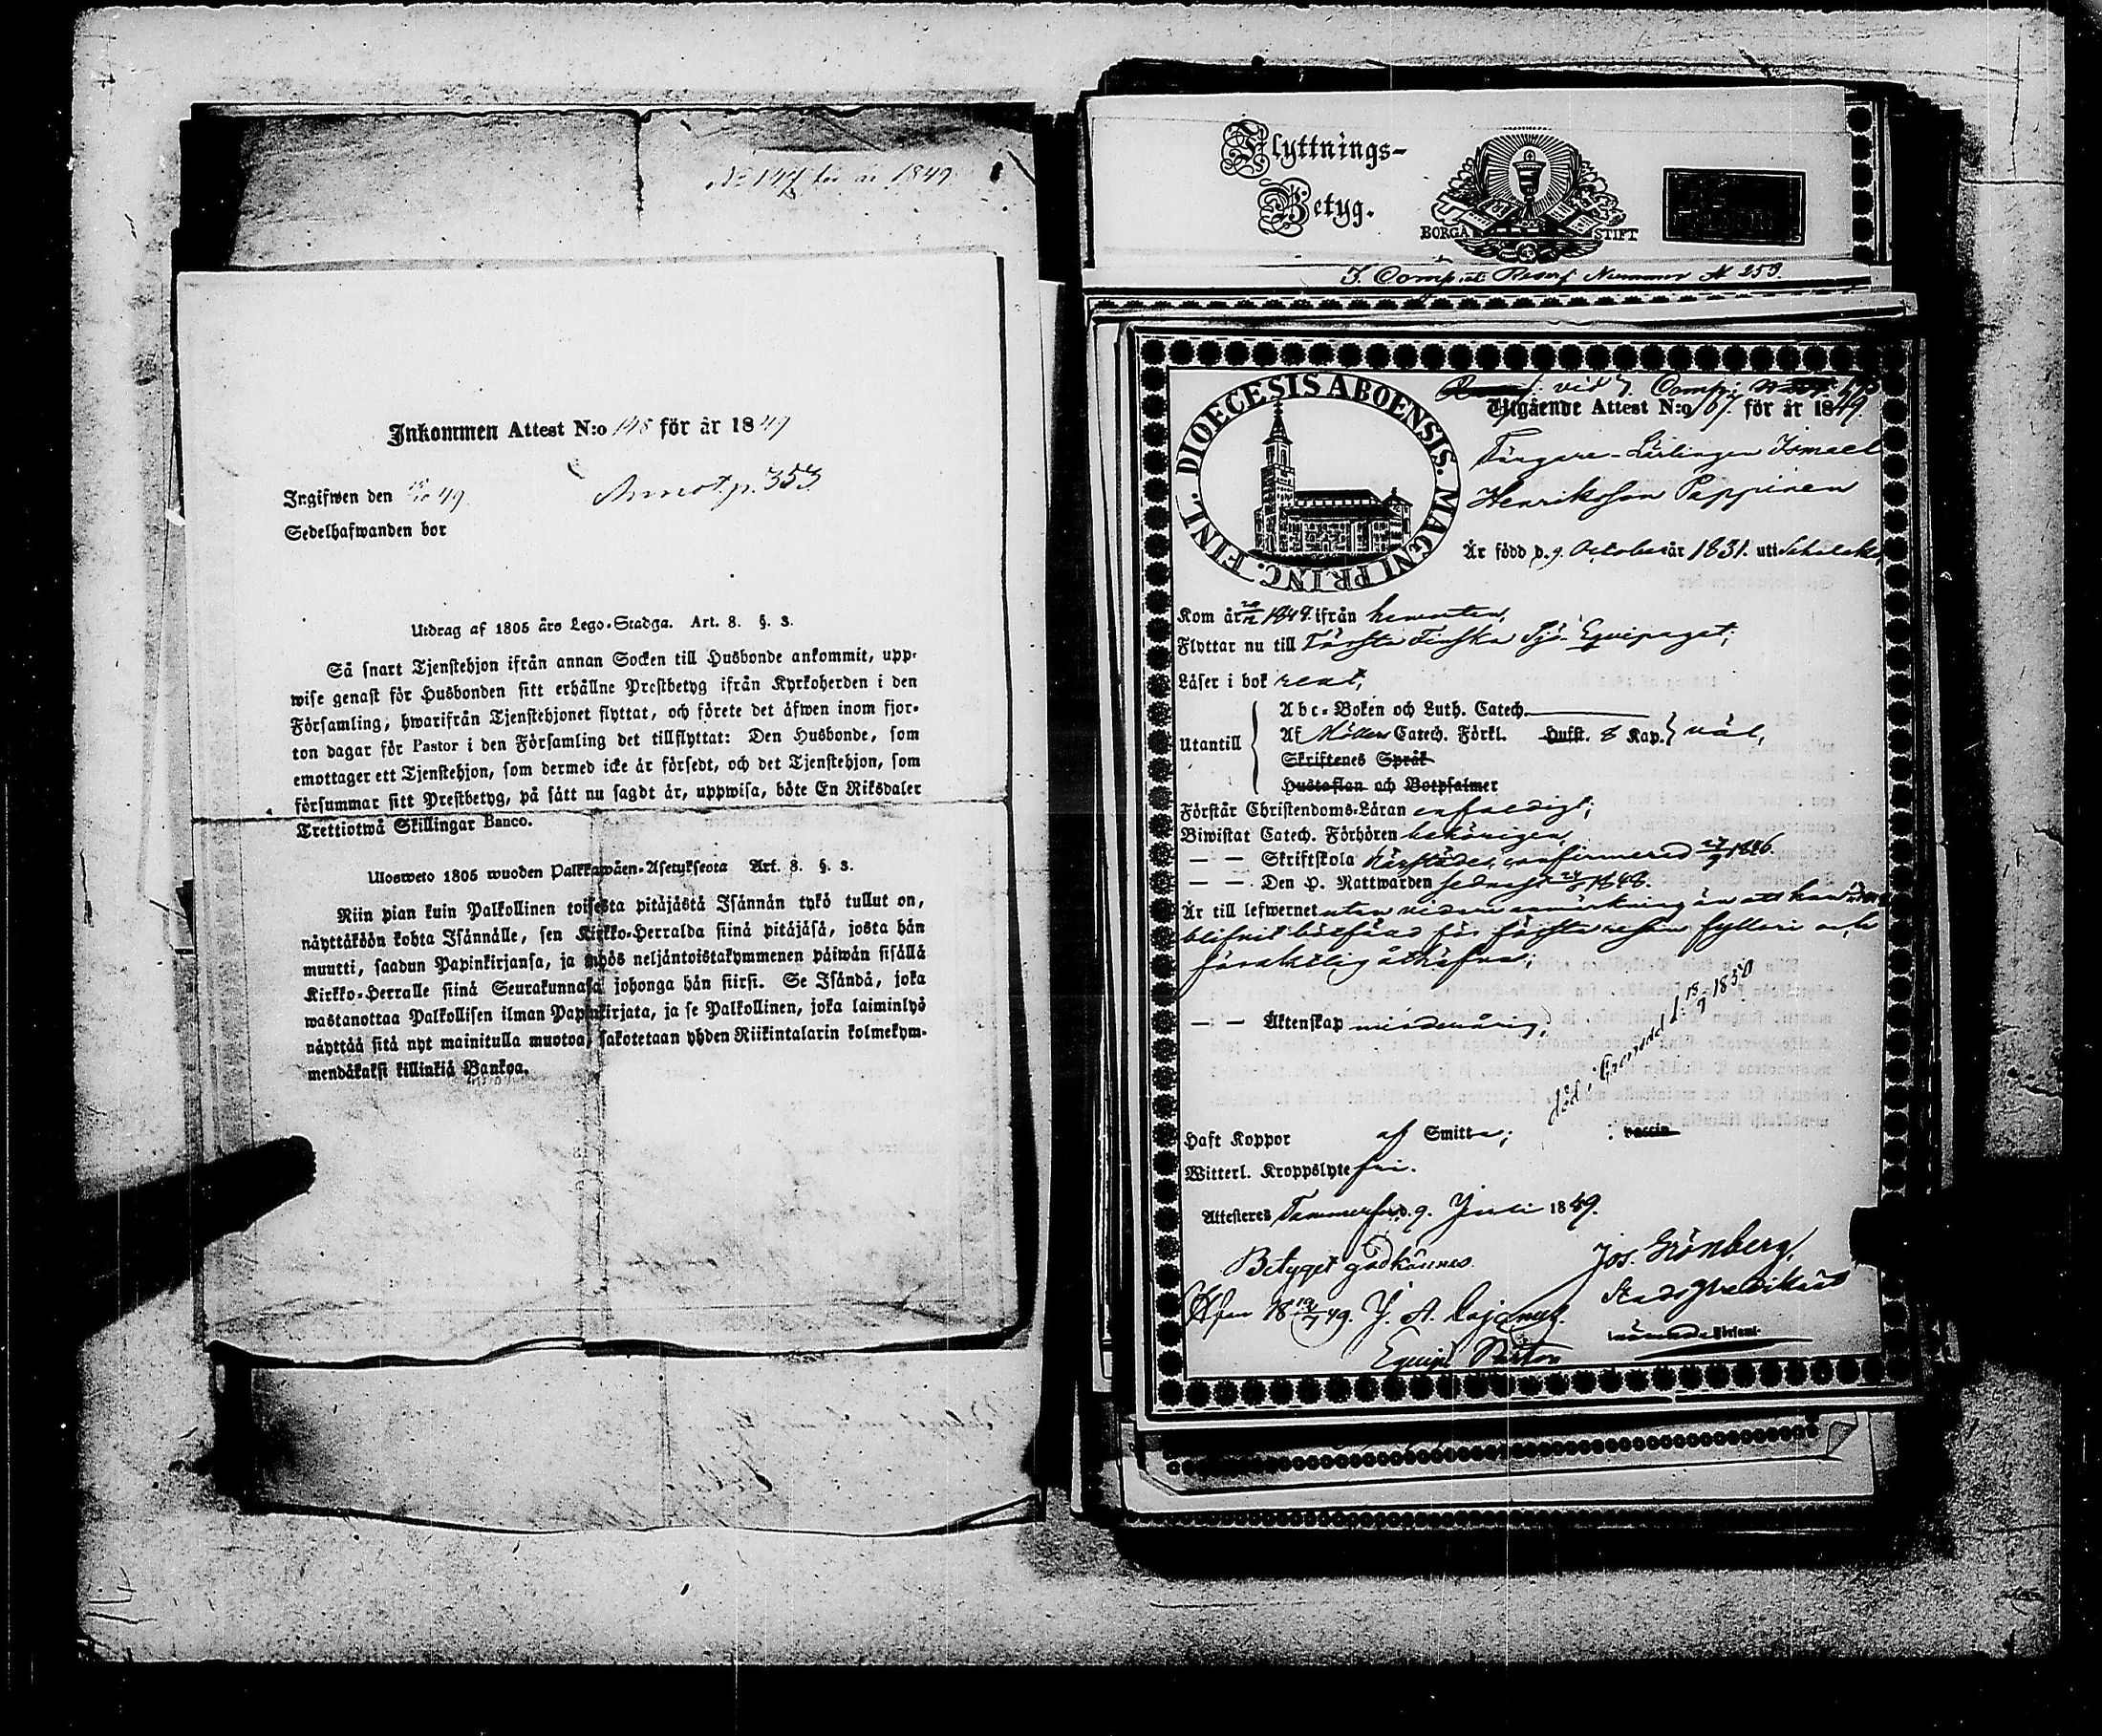 No 147 för år 1849
Inkommen Attest N:o 148 för år 1849
Ingifwen den 49. Annot. p. 353
Sedelhafwanden bor
Utdrag af 1805 års Lego-Stadga. Art. 8. §. 3.
Så snart Tjenstehjon ifrån annan Socken till Husbonde ankommit, upp-
wise genast för Husbonden sitt erhållne Prestbetyg ifrån Kyrkoherden i den
Församling, hwarifrån Tjenstehjonet flyttat, och förete det äfwen inom fjor-
ton dagar för Pastor i den Församling det tillflyttat: Den Husbonde, som
emottager ett Tjenstehjon, som dermed icke är försedt, och det Tjenstehjon, som
försummar sitt Prestbetyg, på sätt nu sagdt är, uppwisa, böte En Riksdaler
Trettiotwå Skillingar Banco.
Ulosweto 1805 wuoden Palkkawäen-Asetuksesta Art. 8. §. 3.
Niin pian kuin Palkollinen toisesta pitäjästä Isännän tykö tullut on,
näyttäköön kohta Isännälle, sen Kirkko-Herralda siinä pitäjäsä, josta hän
muutti, saadun Papinkirjansa, ja myös neljäntoistakymmenen päiwän sisällä
Kirkko-Herralle siinä Seurakunnasa johonga hän siirsi. Se Isändä, joka
wastanottaa Palkollisen ilman Papinkirjata, ja se Palkollinen, joka laiminlyö
näyttää sitä nyt mainitulla muotoa, sakotetaan yhden Riikintalarin kolmekym-
mendäkaksi killinkiä Bankoa.
Flyttnings-
Betyg.
BORGÅ STIFT
7. Comp:st Reserf Nummer № 259.
vid 7. Comp:
DIOECESIS ABOENSIS. MAGNI PRINC. FINL.
Utgående Attest N:o 167. för år 1849.
Färgare-Lärlingen Ismael
Henriksson Pappinen
Är född d. 9. October år 1831. uti
Kom år 1849. ifrån hemorten,
Flyttar nu till Första Finska Sjö-Equipaget;
Läser i bok rent,
Utantill
Abc-Boken och Luth. Catech.
Af Möllers Catech. Förkl. Hufst. 8 Kap. } väl,
Skriftenes Språk
Hustaflan och Botpsalmer
Förstår Christendoms-Läran enfaldigt;
Biwistat Catech. Förhören behörigen,
— — Skriftskola härstädes, confirmerad 27/9 1846.
— — Den H. Nattwarden sednast 24/6 1848.
Är till lefwernet utan vidare anmärkning än att han
blifvit bötfäld för första resan fylleri och
föraktlig åthäfva;
— — Äktenskap minderårig,
död i Cronstadt d. 13/7 1850
Haft Koppor af Smitta; vaccin
Witterl. Kroppslyte fri.
Attesteres Tammerfors d. 9. Juli 1849.
Betyget godkännes. Jos. Grönberg,
Hfors 18 19/7 49. Stadspredikant
Equip. Pastor